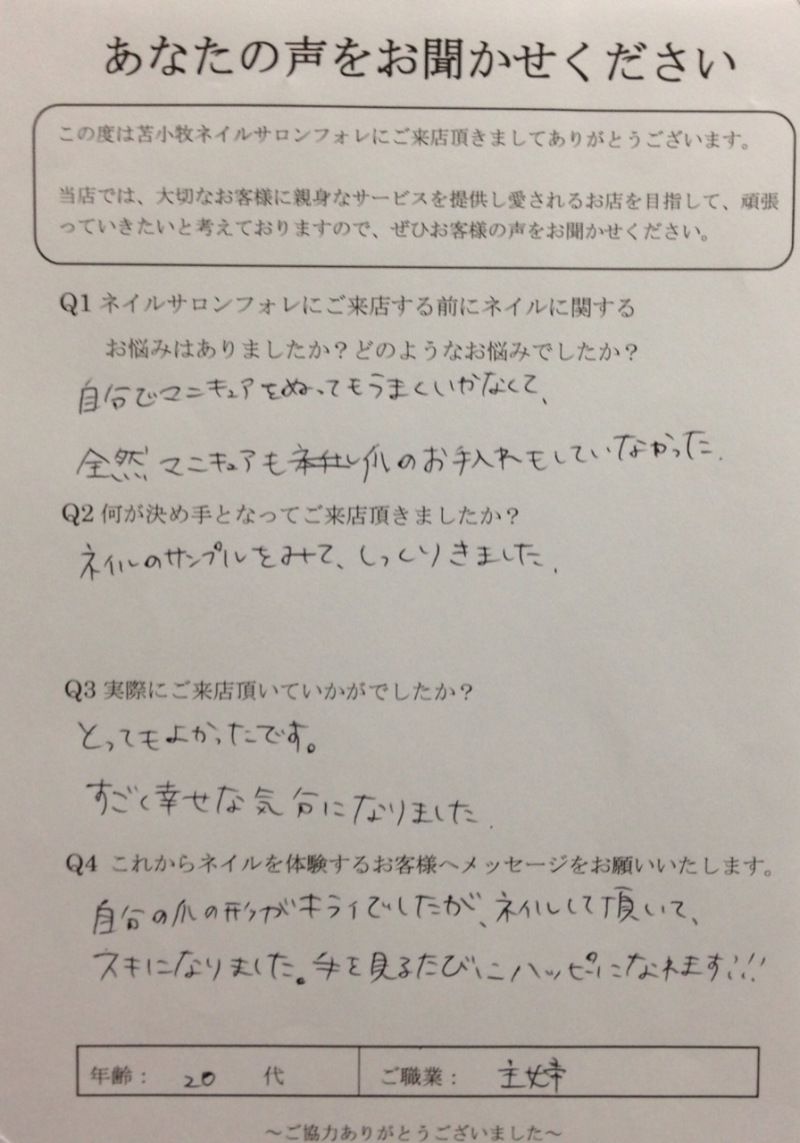 あなたの声をお聞かせください
この度は苫小牧ネイルサロンフォレにご来店頂きましてありがとうございます。
当店では、大切なお客様に親身なサービスを提供し愛されるお店を目指して、頑張
っていきたいと考えておりますので、ぜひお客様の声をお聞かせください。
Q1 ネイルサロンフォレにご来店する前にネイルに関する
お悩みはありましたか？どのようなお悩みでしたか？
自分でマニキュアをぬってもうまくいかなくて、
全然マニキュアも爪のお手入れもしていなかった.
Q2 何が決め手となってご来店頂きましたか？
ネイルのサンプルをみて、しっくりきました.
Q3 実際にご来店頂いていかがでしたか？
とってもよかったです。
すごく幸せな気分になりました.
Q4 これからネイルを体験するお客様へメッセージをお願いいたします。
自分の爪の形がキライでしたが、ネイルして頂いて、
スキになりました。手を見るたびにハッピーになれます!!!
年齢： 20 代 ご職業： 主婦
～ご協力ありがとうございました～